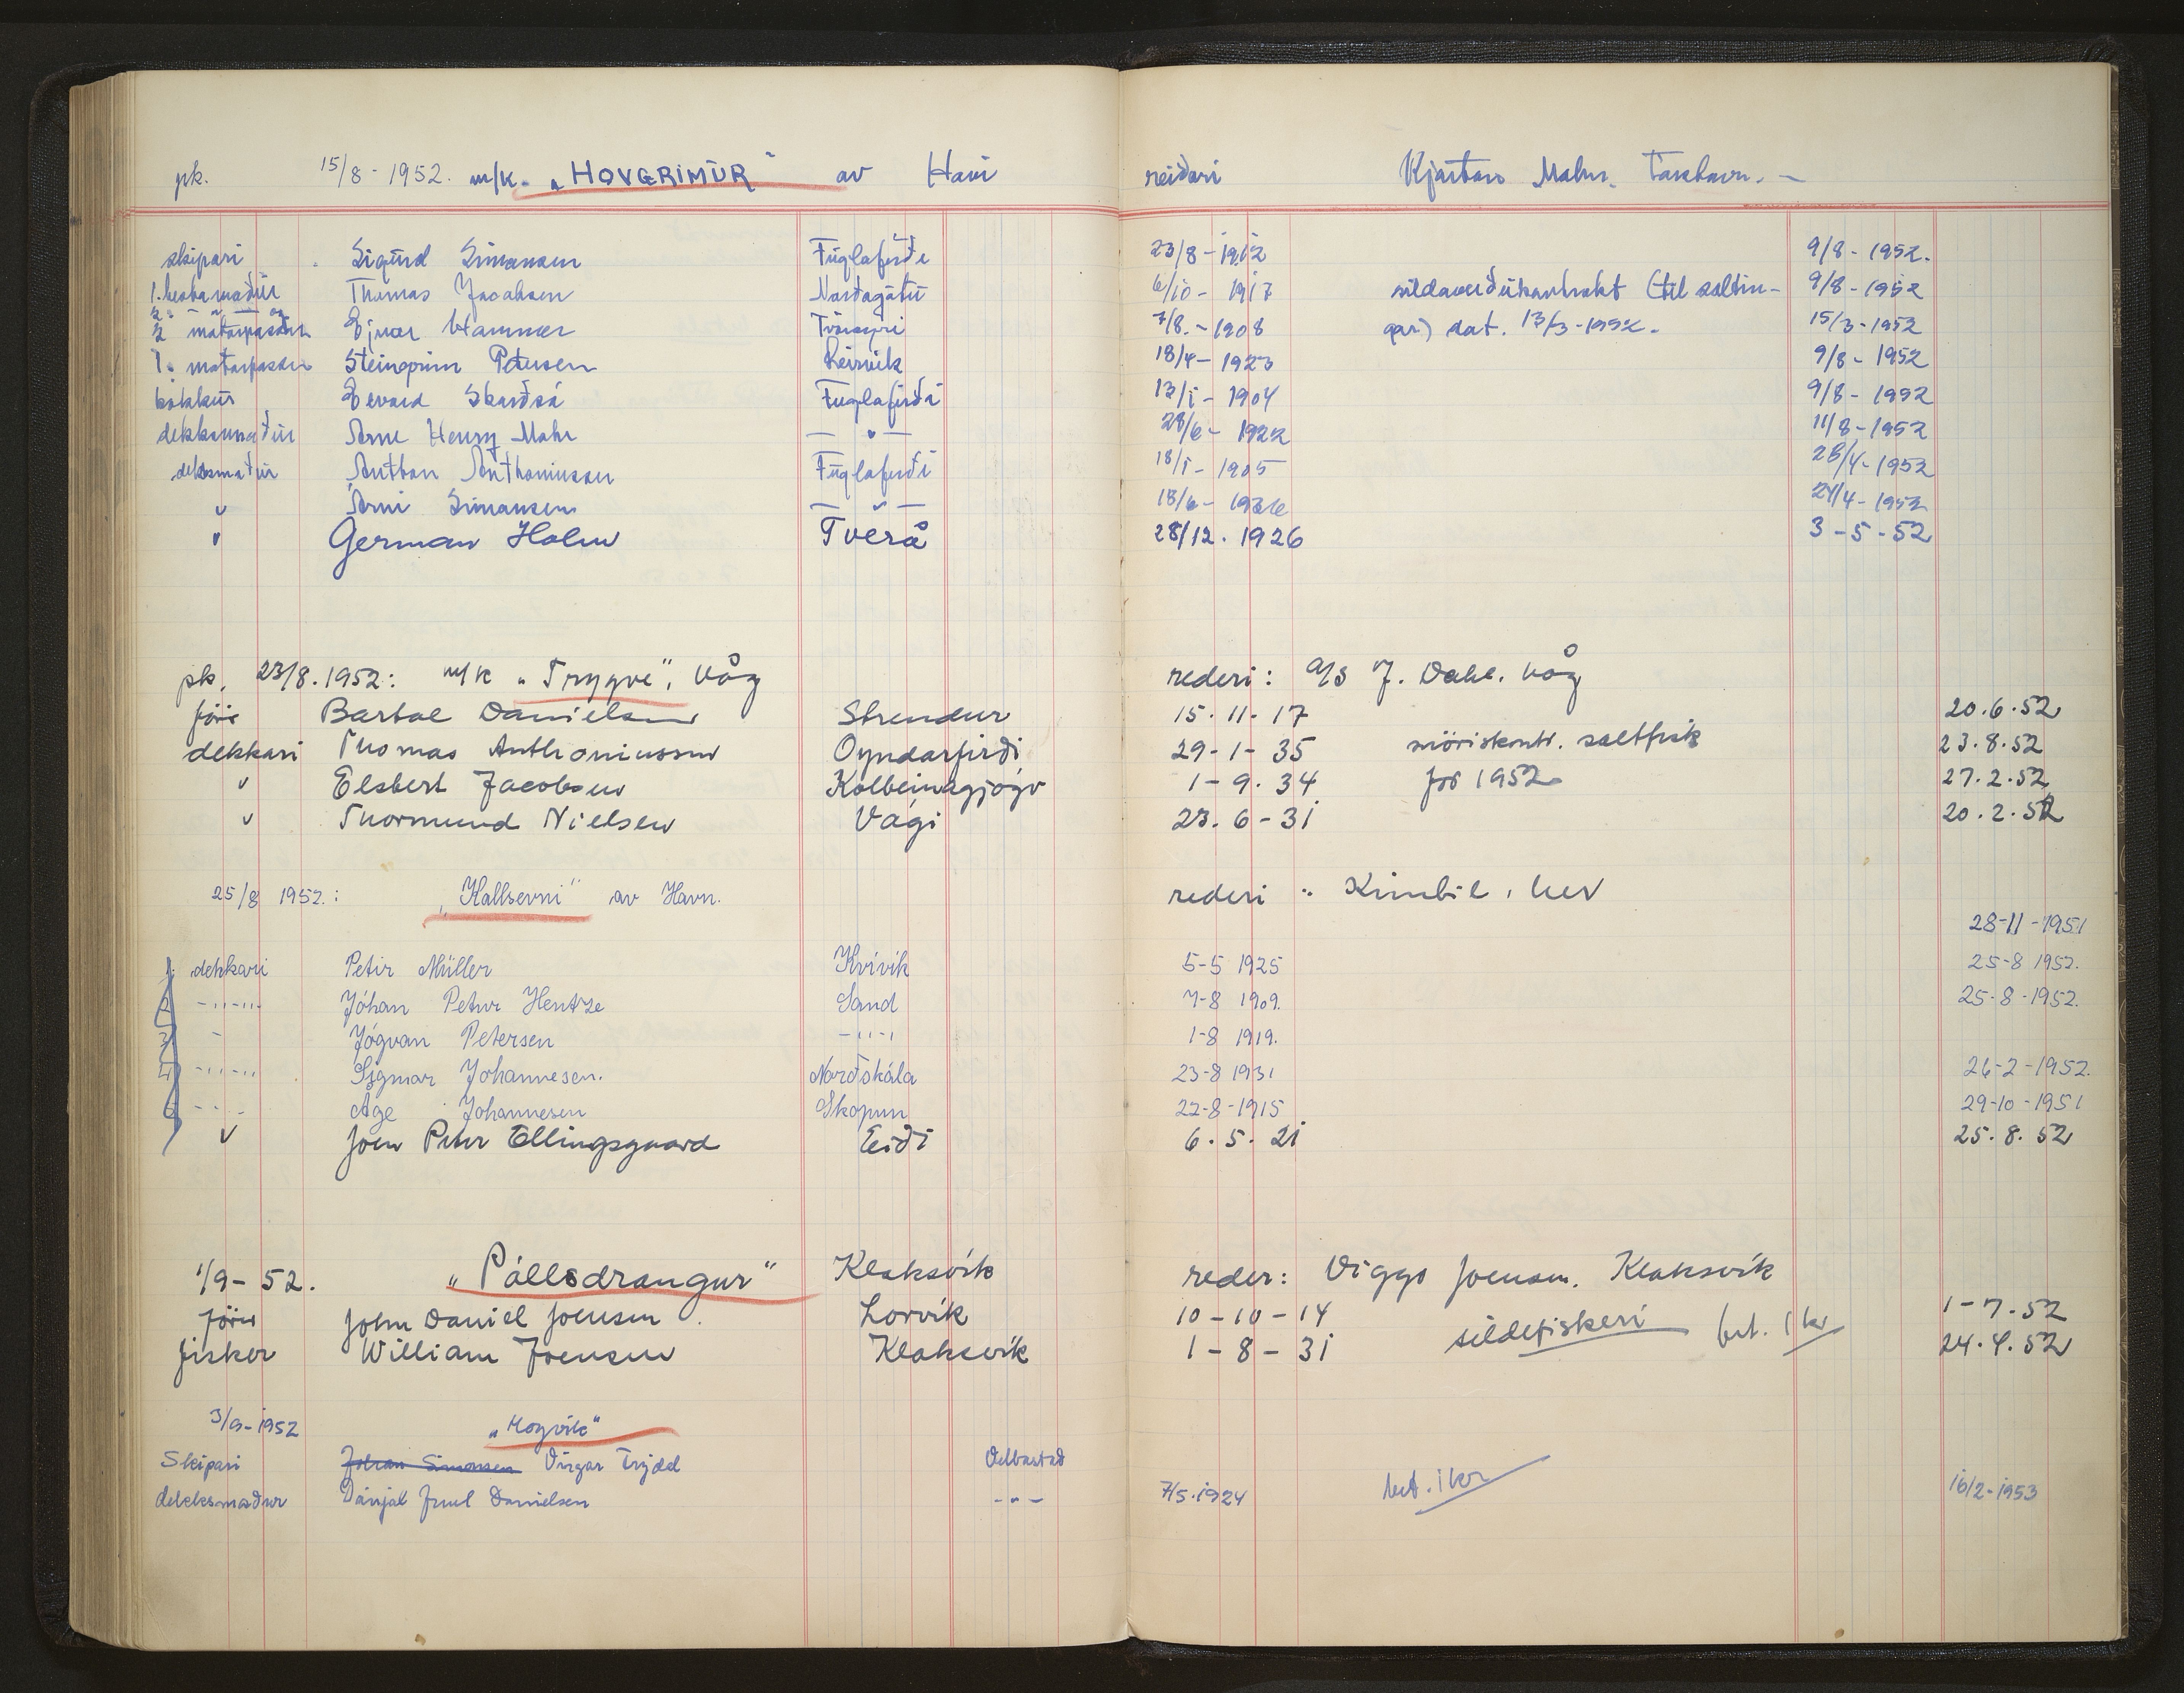 pk. 15/8 - 1952. m/k. „HOVGRIMUR" av Havn reiðari Kjartan Mohr. Tórshavn. -
skipari Sigurd Simonsen Fuglafirði 23/8 - 1912 9/8 - 1952.
1. bestamaður Thomas Jacobsen Norðagøtu 6/10 - 1917 sildaveiðikontrakt (til saltin- 9/8 - 1952
2. - " - og
2 motorpassari Ejnar Hammer Tvøroyri 7/8. - 1908 gar) dat. 13/3 - 1952. 15/3 - 1952
1. motorpassari Steingrim Petersen Leirvik 18/4 - 1923 9/8 - 1952
kokkur Evard Skarðsá Fuglafirði 13/1 - 1904 9/8 - 1952
dekksmaður Arne Henry Mohr — " — 28/6 - 1922 11/8 - 1952
deksmaður Anthon Anthoniussen Fuglafirði 18/1 - 1905 28/4 - 1952
" Arni Simonsen — " — 18/6 - 24/4 - 1952
" German Holm Tverå 28/12. 1926 3 - 5 - 52
pk. 23/8. 1952: m/k „Trygve", Våg rederi: A/S J. Dahl. Våg
fører Bartal Danielsen Strendur 15. 11. 17 20. 6. 52
dekkari Thomas Anthoniussen Oyndarfirði 29 - 1 - 35 saltfisk 23. 8. 52
" Elsbert Jacobsen Kolbeinagjógv 1 - 9. 34 for 1952 27. 2. 52
" Thormund Nielsen Vági 23. 6 - 31 20. 2. 52
25/8 1952.: „Kallsevni" av Havn. rederi : Kimbil,
28-11-1951
1. dekkari Petur Müller Kvívík 5-5 1925 25-8 1952.
2 -"-"- Jóhan Petur Hentze Sand 7-8 1909. 25-8-1952.
3 - Jógvan Petersen -"-" 1-8 1919.
4 -"-"- Sigmar Johannesen. Norðskála 23-8 1931 26-2-1952.
5 -"- Åge Johannesen Skopun 22-8-1915 29-10-1951
" Joen Peter Ellingsgaard Eiði 6. 5. 21 25. 8. 52
1/9 - 52. „Pállsdrangur" Klaksvík reder: Viggo Joensen. Klaksvík
fører John Daniel Joensen. Lorvík 10 - 10 - 14 sildefiskeri bet. 1 kr 1 - 7. 52
fisker William Joensen Klaksvík 1 - 8 - 31 24. 4. 52
3/9 - 1952 „Hoyvík"
Skipari Johan Simonsen Virgar Trýdal Velbastað
dekksmaður Dánjal Juul Danielsen - " - 7/5. 1924 bet. 1 kr 16/2 - 1953